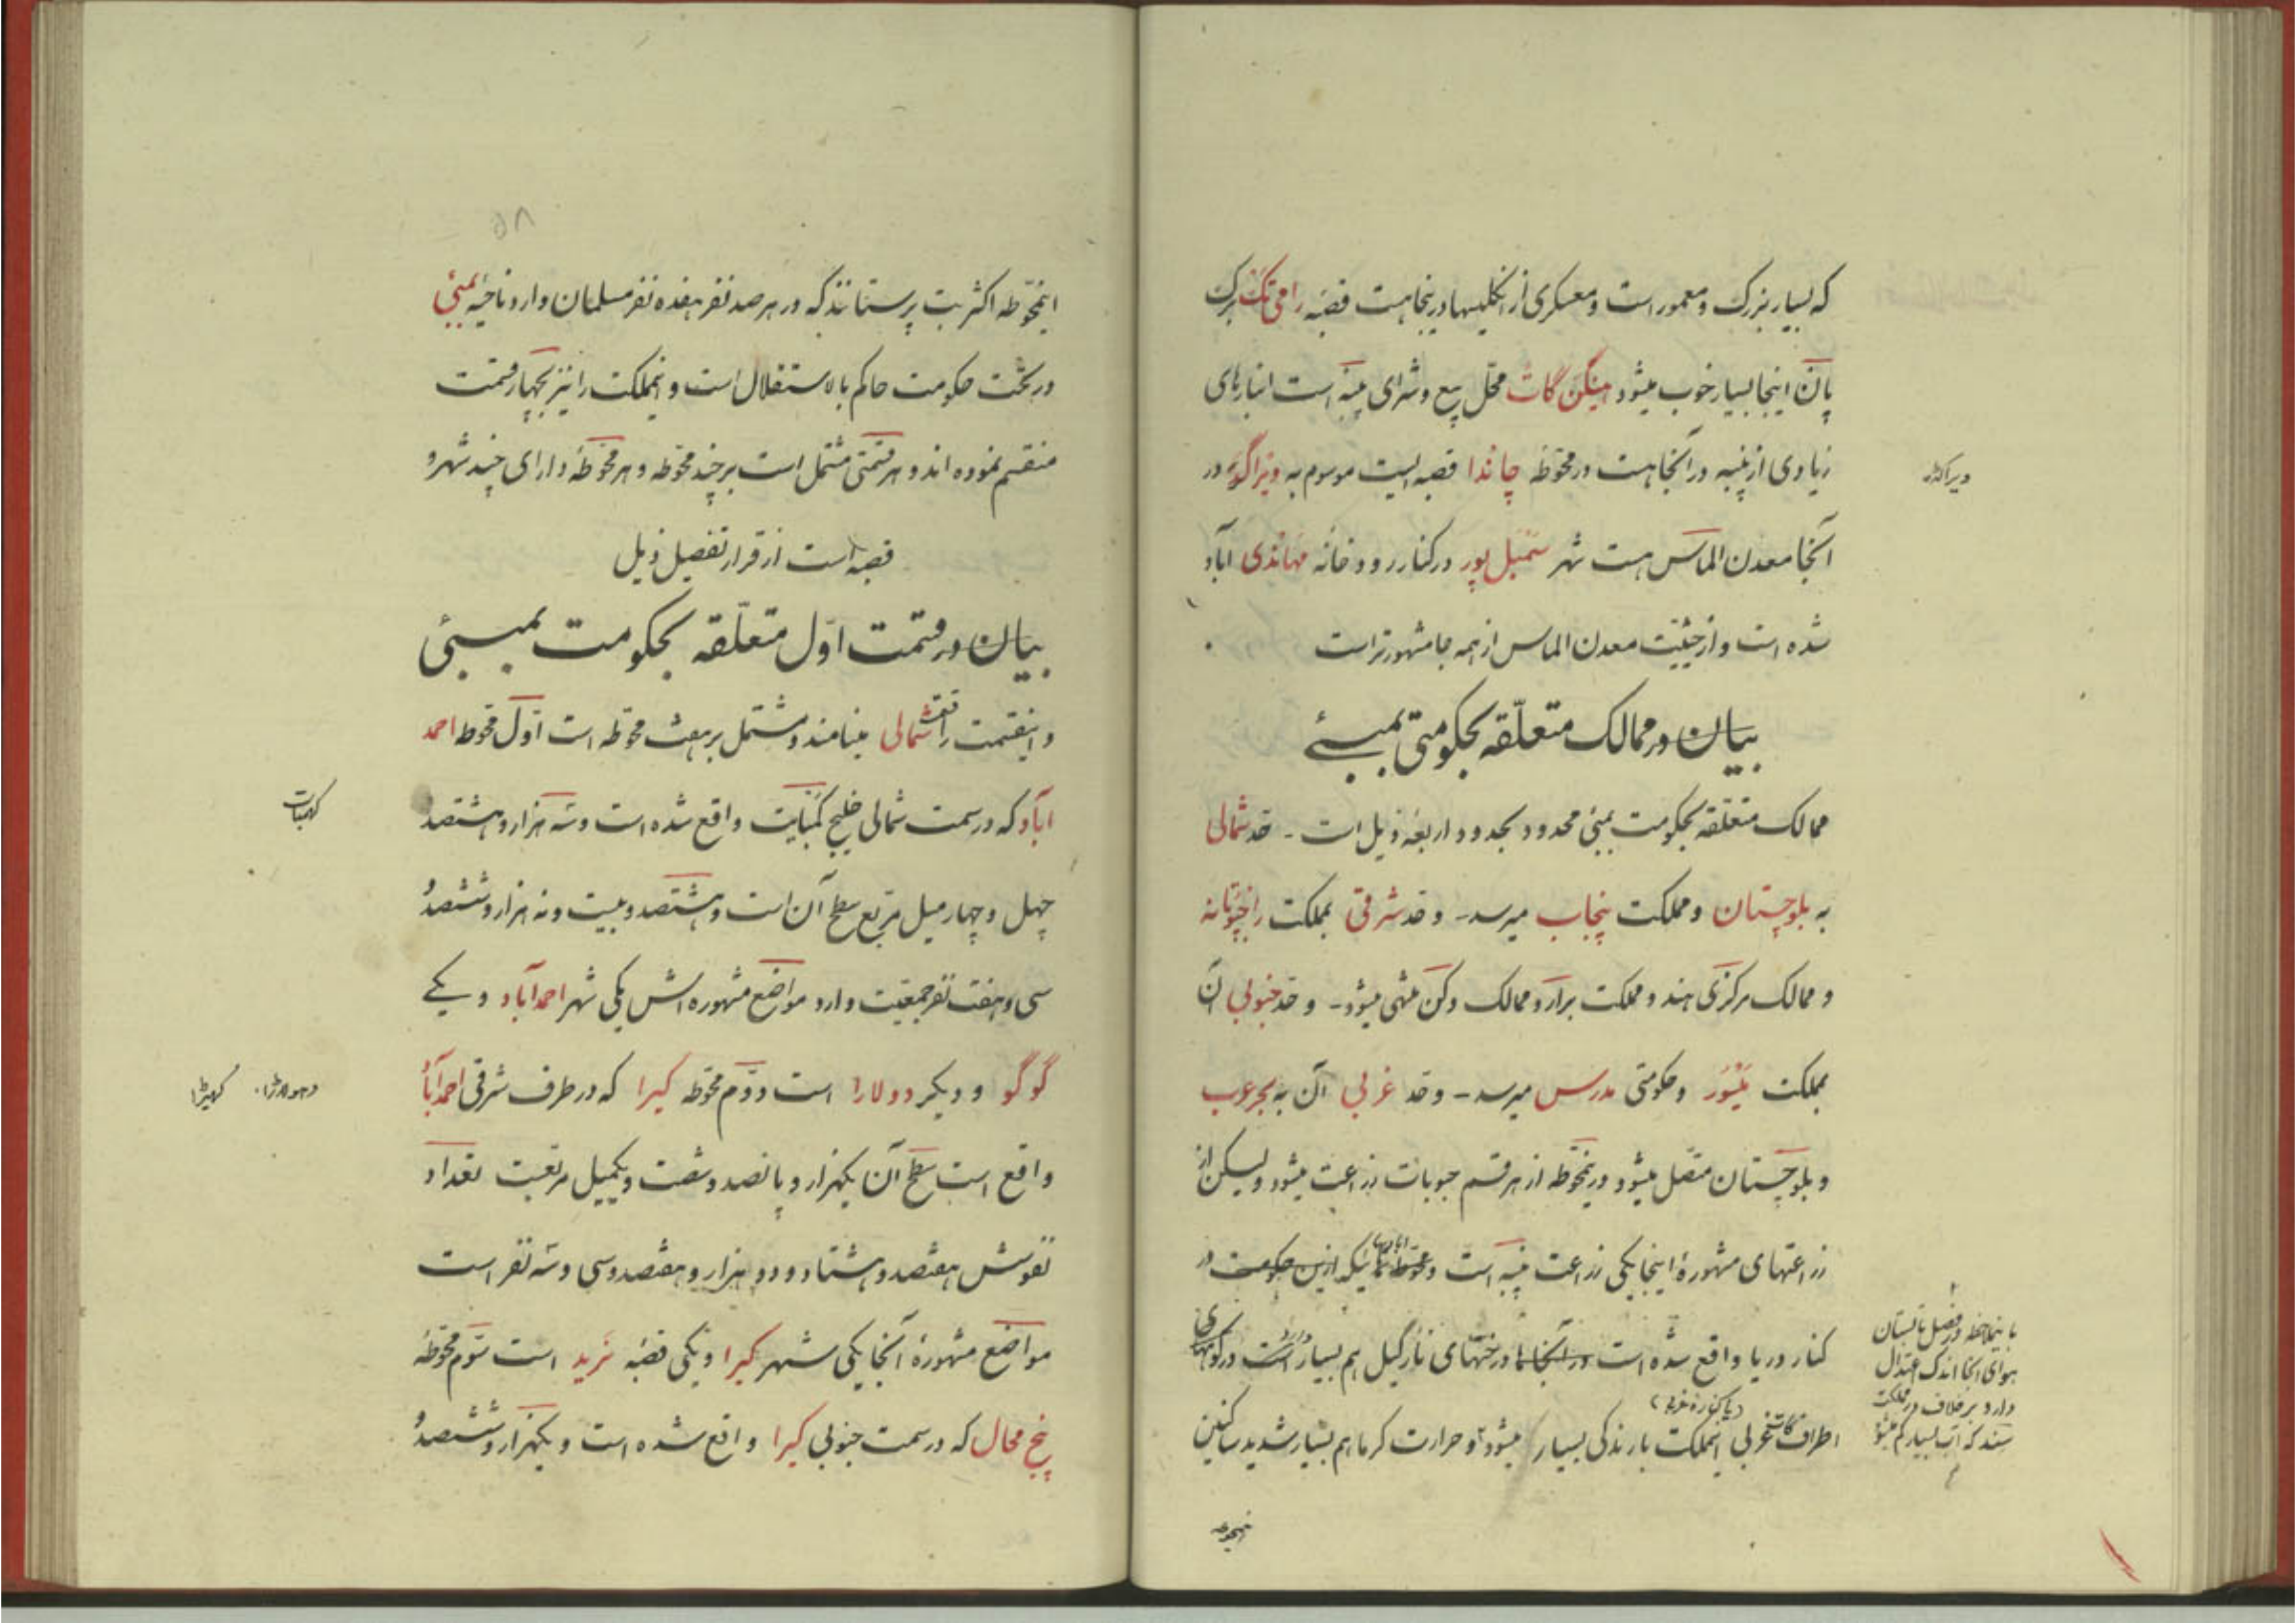 که بسیار بزرگ و معمور است و معسکری از انگلیسها در ینجا هست قصبه رامی‌تک برگ
پان اینجا بسیار خوب میشود هینگن گات محل بیع و شرای پنبه است انبارهای
زیادی از پنبه در آنجا هست در محوطه چاندا قصبه ایست موسوم به ویراگر در
ویراکڈر
آنجا معدن الماس هست شهر سمبل پور در کنار رودخانه مهاندی آباد
شده است و از حیثیت معدن الماس از همه جا مشهورتر است
بیان در ممالک متعلقه بحکومتی بمبئے
ممالک متعلقه بحکومت بمبئی محدود بحدود اربعه ذیل است - حد شمالی
به بلوچستان و مملکت پنجاب میرسد - و حد شرقی بمملکت راجپوتانه
و ممالک مرکزی هند و مملکت برار و ممالک دکن منتهی میشود - و حد جنوبی آن
بمملکت میسور و حکومتی مدرس میرسد - و حد غربی آن به بحر عرب
و بلوچستان متصل میشود درینمحوطه از هر قسم حبوبات زراعت میشود ولیکن از
زراعتهای مشهوره اینجا یکی زراعت پنبه است و محوطه‌ها ئیکه ازین حکومت در
کنار دریا واقع شده است در آنجاها درختهای نارگیل هم بسیار است در کوههای
اطراف گات غربی اینمملکت بارندگی بسیار میشود و حرارت گرما هم بسیار شدید لیکن
با ینملاحظه در فصل تابستان
هوای آنجا اندک اعتدال
دارد برخلاف در مملکت
سند که آب بسیار کم میشود
اینمحوطه
۵۸
اینمحوطه اکثر بت پرستانند که در هر صد نفر هفده نفر مسلمان دارد ناحیه بمبئی
در تحت حکومت حاکم بالاستقلال است و اینمملکت را نیز بچهار قسمت
منقسم نموده اند و هر قسمتی مشتمل است بر چند محوطه و هر محوطه دارای چند شهر و
قصبه است از قرار تفصیل ذیل
بیان در قسمت اول متعلقه بحکومت بمبئی
و اینقسمت را قسمت شمالی مینامند و مشتمل بر هشت محوطه است اول محوطه احمد
آباد که در سمت شمالی خلیج کمبایت واقع شده است و سه هزار و هشتصد و
کهنبات
چهل و چهار میل مربع سطح آن است و هشتصد و بیست و نه هزار و ششصد و
سی و هفت نفر جمعیت دارد مواضع مشهوره اش یکی شهر احمدآباد و یکے
گوگو و دیگر دولارا است دوم محوطه کیرا که در طرف شرقی احمدآباد
دهولارڑا. کهیڑا
واقع است سطح آن یکهزار و پانصد و شصت و یکمیل مربعست تعداد
نفوسش هفتصد و هشتاد و دو هزار و هفتصد و سی و سه نفر است
مواضع مشهوره آنجا یکی شهر کیرا و یکی قصبه نرید است سوم محوطه
پنج محال که در سمت جنوبی کیرا واقع شده است و یکهزار و ششصد و